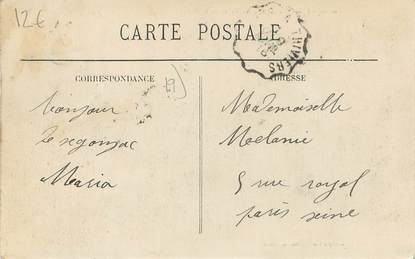 12€
CARTE POSTALE
THIVIERS
CORRESPONDANCE
ADRESSE
19
bonjour
de segonzac
Maria
Mademoiselle
Melanie
5 rue royal
paris seine